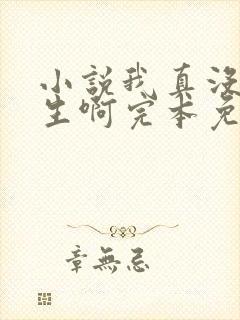 小說我真沒
生啊完本免
章無忌